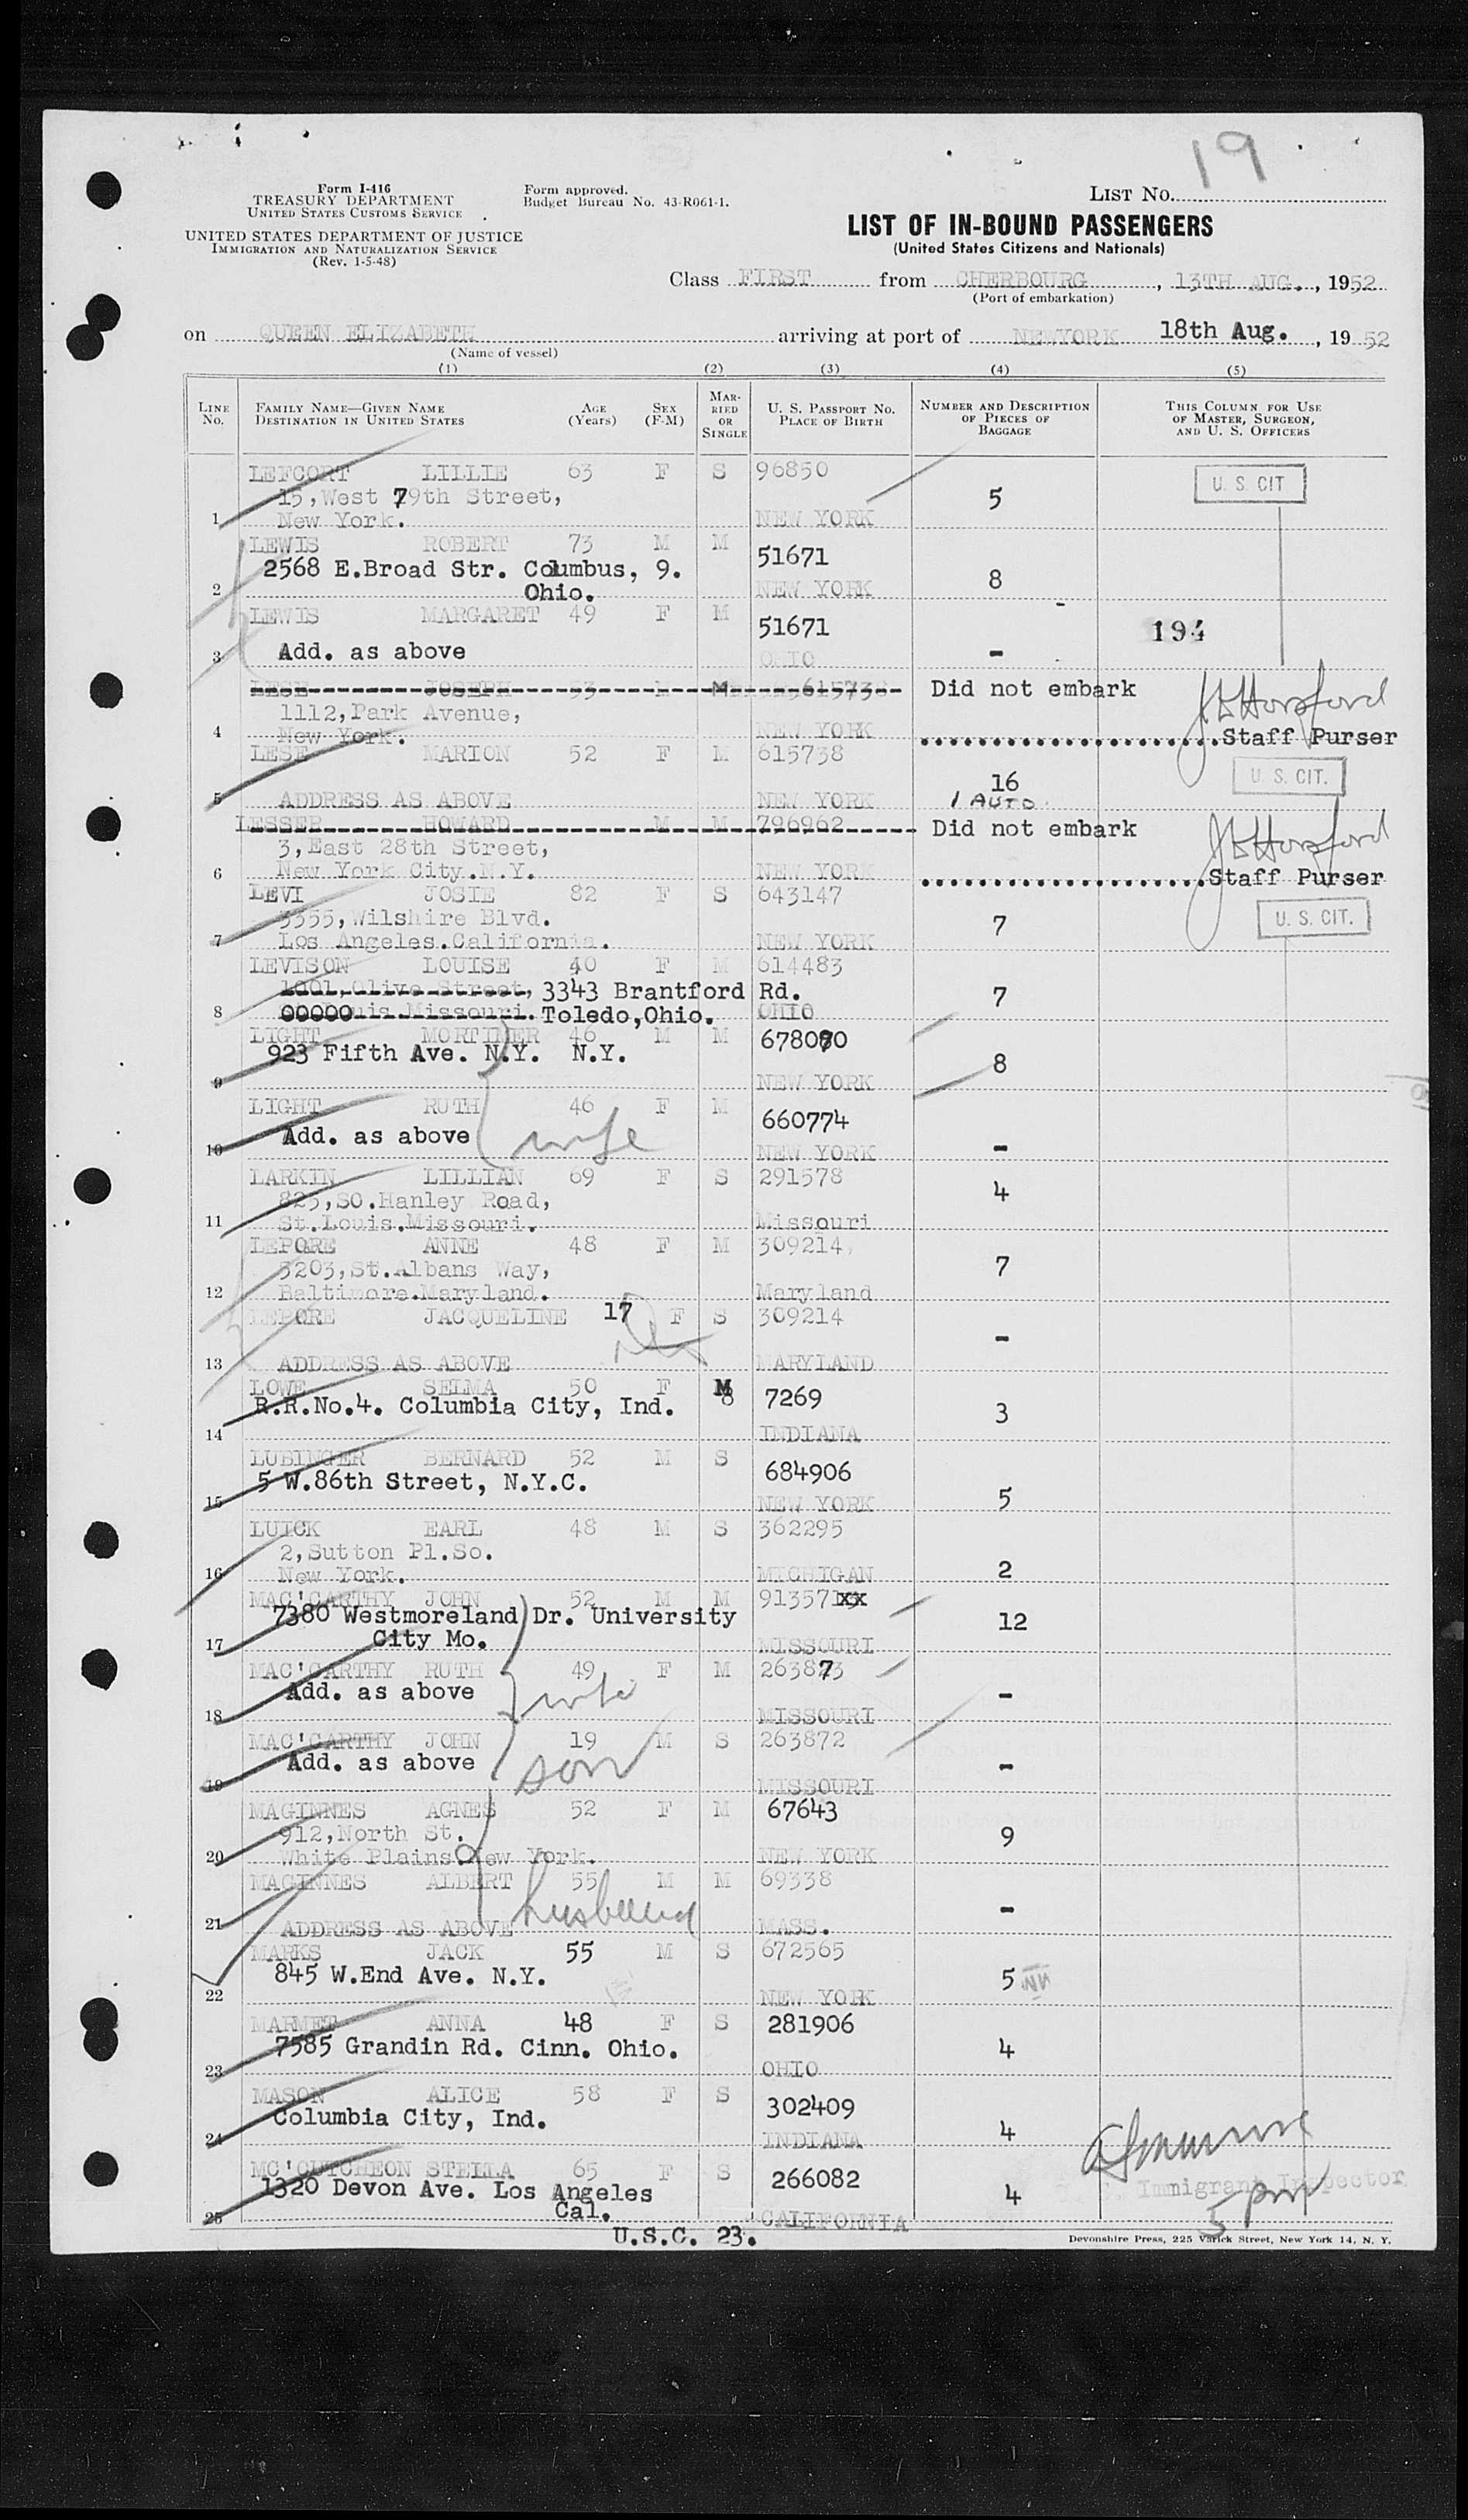 19
Form I-416
TREASURY DEPARTMENT
UNITED STATES CUSTOMS SERVICE
Form approved.
Budget Bureau No. 43-R061-1.
LIST NO.
UNITED STATES DEPARTMENT OF JUSTICE
IMMIGRATION AND NATURALIZATION SERVICE
(Rev. 1-5-48)
LIST OF IN-BOUND PASSENGERS
(United States Citizens and Nationals)
Class FIRST from CHERBOURG, 13TH AUG., 1952
(Port of embarkation)
on QUEEN ELIZABETH arriving at port of NEWYORK 18th Aug., 1952
(Name of vessel)
(1) (2) (3) (4) (5)
LINE NO. FAMILY NAME—GIVEN NAME DESTINATION IN UNITED STATES AGE (Years) SEX (F-M) MARRIED OR SINGLE U. S. PASSPORT NO. PLACE OF BIRTH NUMBER AND DESCRIPTION OF PIECES OF BAGGAGE THIS COLUMN FOR USE OF MASTER, SURGEON, AND U. S. OFFICERS
LEFCORT LILLIE 63 F S 96850
U. S. CIT
15,West 79th Street, 5
1 New York. NEW YORK
LEWIS ROBERT 73 M M 51671
2568 E.Broad Str. Columbus, 9. 8
2 Ohio. NEW YORK
LEWIS MARGARET 49 F M 51671
194
3 Add. as above OHIO -
LESE JOSEPH 53 M M 615738 Did not embark
1112,Park Avenue,
4 New York. NEW YORK Staff Purser
LESE MARION 52 F M 615738
U. S. CIT.
16
5 ADDRESS AS ABOVE NEW YORK 1 AUTO
LESSER HOWARD M M 796962 Did not embark
3,East 28th Street,
6 New York City.N.Y. NEW YORK Staff Purser
LEVI JOSIE 82 F S 643147
3355,Wilshire Blvd. 7 U. S. CIT.
7 Los Angeles.California. NEW YORK
LEVISON LOUISE 40 F M 614483
1001,Olive Street, 3343 Brantford Rd. 7
8 Toledo,Ohio. OHIO
LIGHT MORTIMER 46 M M 678070
923 Fifth Ave. N.Y. N.Y. 8
9 NEW YORK
LIGHT RUTH 46 F M 660774
10 Add. as above wife NEW YORK -
LARKIN LILLIAN 69 F S 291578
825,SO.Hanley Road, 4
11 St.Louis.Missouri. Missouri
LEPORE ANNE 48 F M 309214
5203,St.Albans Way, 7
12 Baltimore.Maryland. Maryland
LEPORE JACQUELINE 17 F S 309214
-
13 ADDRESS AS ABOVE MARYLAND
LOWE SELMA 50 F M 7269
R.R.No.4. Columbia City, Ind. 3
14 INDIANA
LUBINGER BERNARD 52 M S 684906
5 W.86th Street, N.Y.C.
15 NEW YORK 5
LUICK EARL 48 M S 362295
2,Sutton Pl.So.
16 New York. MICHIGAN 2
MAC'CARTHY JOHN 52 M M 91357
7380 Westmoreland Dr. University 12
17 City Mo. MISSOURI
MAC'CARTHY RUTH 49 F M 263873
Add. as above wife -
18 MISSOURI
MAC'CARTHY JOHN 19 M S 263872
Add. as above son -
19 MISSOURI
MAGINNES AGNES 52 F M 67643
912,North St. 9
20 White Plains.New York. NEW YORK
MAGINNES ALBERT 55 M M 69338
husband -
21 ADDRESS AS ABOVE MASS.
MARKS JACK 55 M S 672565
845 W.End Ave. N.Y. 5
22 NEW YORK
MARMET ANNA 48 F S 281906
7585 Grandin Rd. Cinn. Ohio. 4
23 OHIO
MASON ALICE 58 F S 302409
Columbia City, Ind. 4
24 INDIANA
MC'CUTCHEON STELLA 65 F S 266082
1320 Devon Ave. Los Angeles 4 Immigrant Inspector
25 Cal. CALIFORNIA 5 pm
U.S.C. 23.
Devonshire Press, 225 Varick Street, New York 14, N. Y.